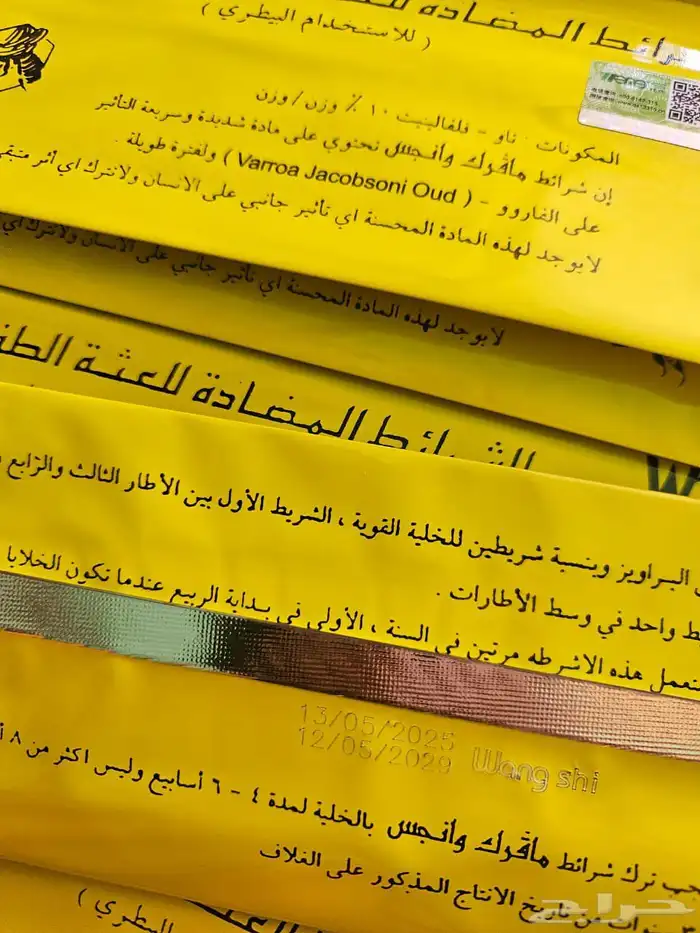 شرائط المضادة
( للاستخدام البيطري )
المكونات : تاو - فلفالينيت ١٠ ٪ وزن / وزن
إن شرائط مافرك وانجس تحتوي على مادة شديدة وسريعة التأثير
على الفاروو - ( Varroa Jacobsoni Oud ) ولفترة طويلة .
لايوجد لهذه المادة المحسنة اي تأثير جانبي على الانسان ولاتترك اي أثر
لايوجد لهذه المادة المحسنة اي تأثير جانبي على الانسان ولاتترك
الشرائط المضادة للعثة
البراويز وبنسبة شريطين للخلية القوية ، الشريط الأول بين الأطار الثالث والرابع
واحد في وسط الأطارات .
تعمل هذه الاشرطه مرتين في السنة ، الأولى في بداية الربيع عندما تكون الخلايا
13/05/2025
12/05/2029
Wang shi
ترك شرائط مافرك وانجس بالخلية لمدة ٤ - ٦ أسابيع وليس اكثر من ٨
من تاريخ الانتاج المذكور على الغلاف
البيطري )
حراج